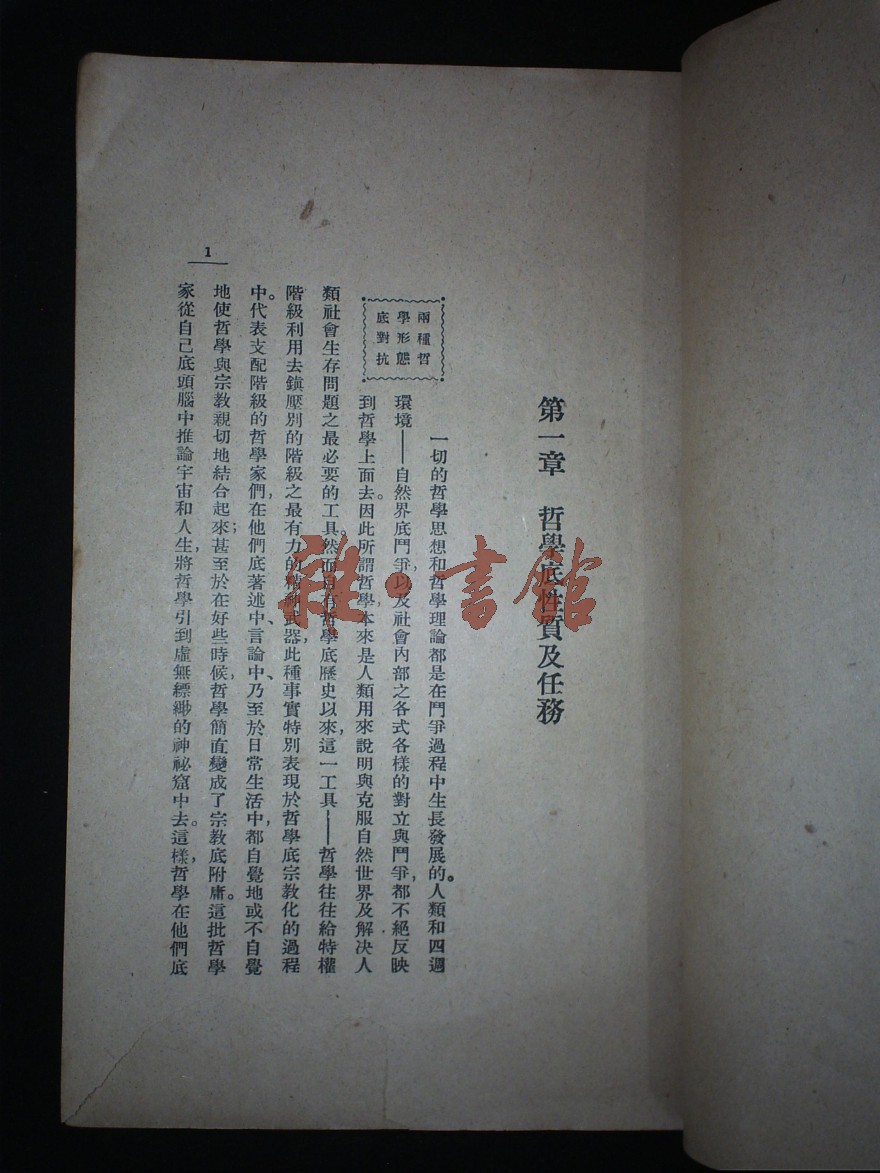 第一章　哲學底性質及任務
兩種哲
學形態
底對抗
一切的哲學思想和哲學理論都是在鬥爭過程中生長發展的。人類和四週
環境——自然界底鬥爭，以及社會內部之各式各樣的對立與鬥爭，都不絕反映
到哲學上面去。因此所謂哲學，本來是人類用來說明與克服自然世界及解决人
類社會生存問題之最必要的工具。然而自有哲學底歷史以來，這一工具——哲學往往給特權
階級利用去鎮壓別的階級之最有力的精神武器，此種事實特別表現於哲學底宗教化的過程
中。代表支配階級的哲學家們，在他們底著述中、言論中、乃至於日常生活中，都自覺地或不自覺
地使哲學與宗教親切地結合起來；甚至於在好些時候，哲學簡直變成了宗教底附庸。這批哲學
家從自己底頭腦中推論宇宙和人生，將哲學引到虛無縹緲的神祕窟中去。這樣，哲學在他們底
1
雜·書館